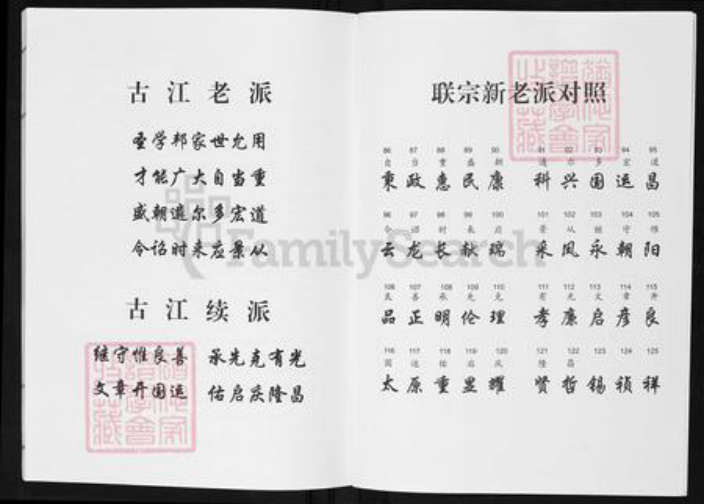 古江老派
圣学邦家世允用
才能广大自当重
盛朝遴尔多宏道
令诏时来应景从
古江续派
继守惟良善 承先克有光
文章开国运 佑启庆隆昌
联宗新老派对照
86 87 88 89 90 91 92 93 94 95
自 当 重 盛 朝 遴 尔 多 宏 道
秉 政 惠 民 康 科 兴 国 运 昌
96 97 98 99 100 101 102 103 104 105
令 诏 时 来 应 景 从 继 守 惟
云 龙 长 献 瑞 采 凤 永 朝 阳
106 107 108 109 110 111 112 113 114 115
良 善 承 先 克 有 光 文 章 开
品 正 明 伦 理 孝 廉 启 彦 良
116 117 118 119 120 121 122 123 124 125
国 运 佑 启 庆 隆 昌
太 原 重 显 耀 贤 哲 锡 祯 祥
FamilySearch